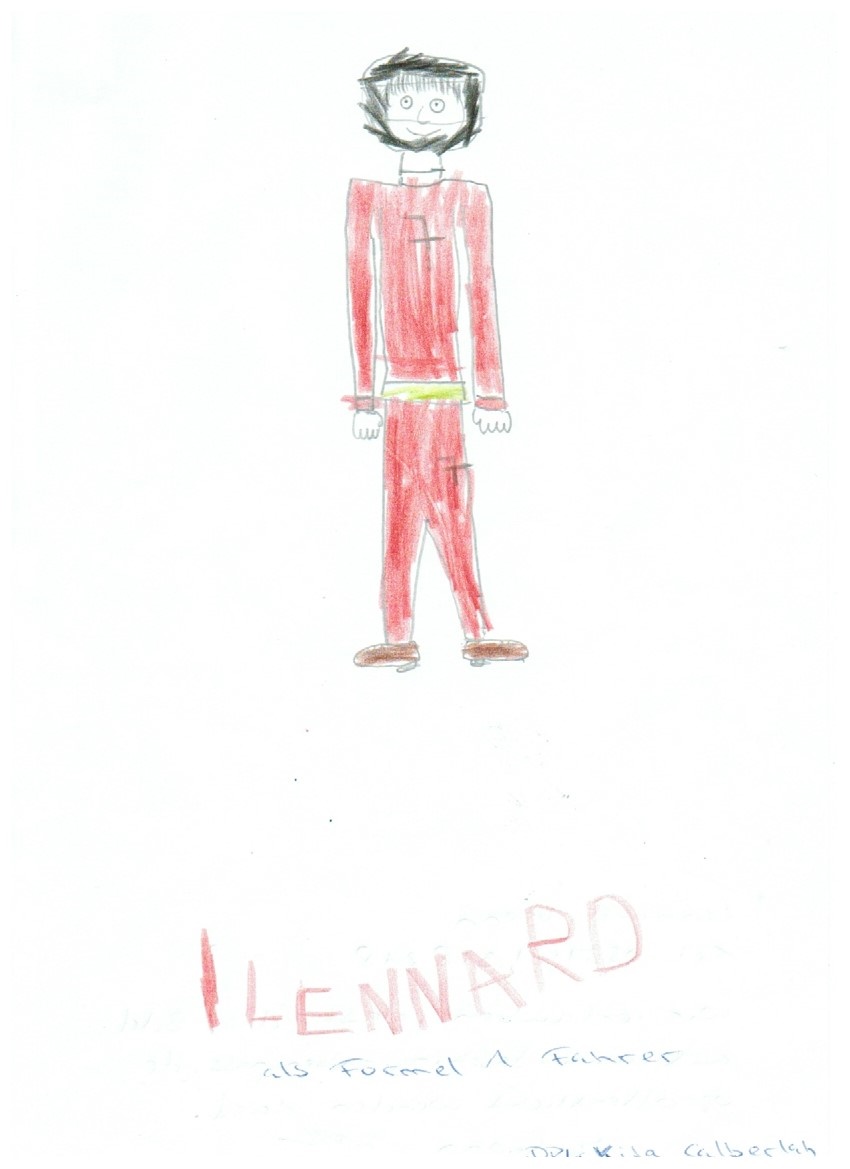 7
7
LENNARD
als Formel 1 Fahrer
DRK Kita Calberlah